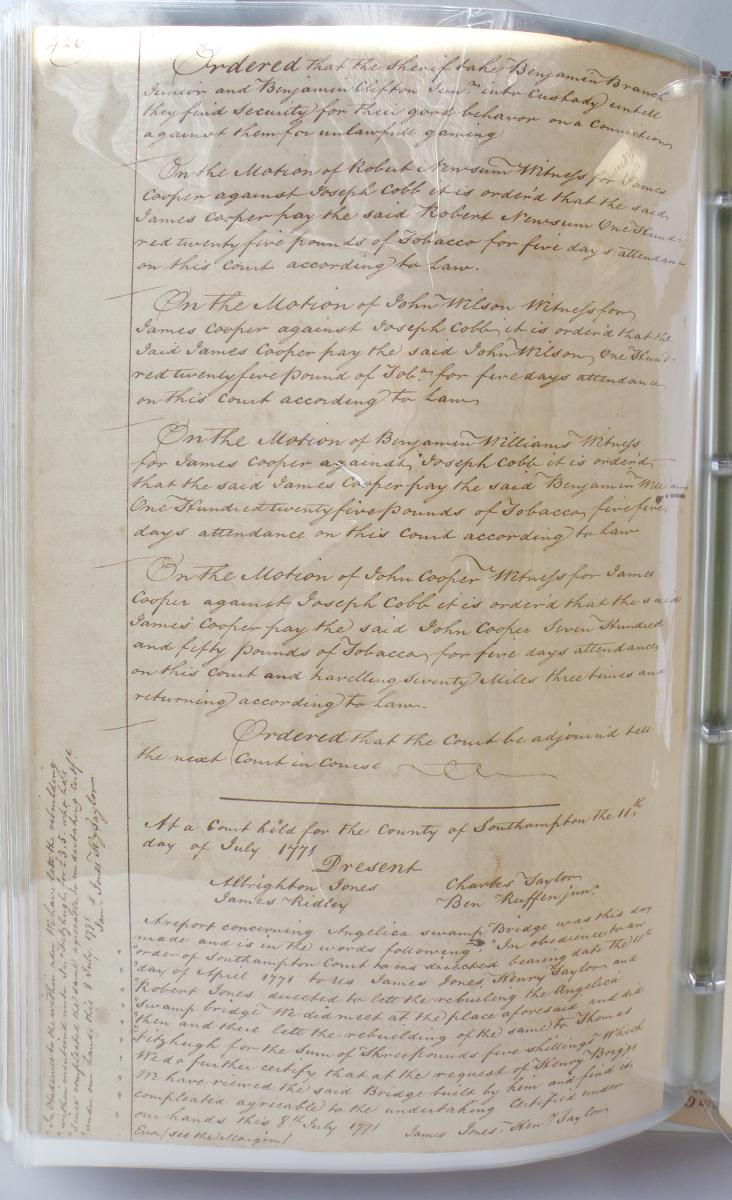 426
Ordered that the sherif take Benjamin Branch
Junior and Benjamin Clifton Junr. into Custody untill
they find Security for their good behavior on a Conviction
against them for unlawfull gaming
On the Motion of Robert Newsum Witness for James
Cooper against Joseph Cobb it is order'd that the said
James Cooper pay the said Robert Newsum One Hund
red twenty five pounds of Tobacco for five days attendance
on this Court according to Law.
On the Motion of John Wilson Witness for
James Cooper against Joseph Cobb, it is order'd that the
Said James Cooper pay the said John Wilson, One Hund
red twenty five pound of Tobo. for five days attendance
on this Court according to Law
On the Motion of Benjamin Williams Witness
for James Cooper against Joseph Cobb it is order'd
that the said James Cooper pay the said Benjamin Williams
One Hundred twenty five Pounds of Tobacco, five five
days attendance on this Court according to Law
On the Motion of John Cooper Witness for James
Cooper against Joseph Cobb it is order'd that the said
James Cooper pay the said John Cooper Seven Hundred
and fifty pounds of Tobacco, for five days attendance
on this Court and travelling Seventy Miles three times and
returning according to Law.
Ordered that the Court be adjourn'd till
the next Court in Course
At a Court held for the County of Southampton the 11th
day of July 1771
Present
Albrighton Jones Charles Taylor
James Ridley Ben Ruffin junr.
A report concerning Angelica swamp Bridge was this day
made and is in the words following "In obedience to an
"order of Southampton Court to us directed bearing date the 11th
"day of April 1771 to us James Jones, Henry Taylor, and
"Robert Jones directed to lett the rebuilding the Angelica
"Swamp bridge We did meet at the place aforesaid and did
"then and there lett the rebuilding of the same to Thomas
"Fitzhugh for the Sum of Three pounds five shillings Which
We do further certify that at the request of Henry Briggs
We have viewed the said Bridge built by him and find it
compleated agreeable to the undertaking Certified under
our hands this 8th July 1771 James Jones, Heny Taylor
Error (see the Margin)
"In Obedience to the within order We have lett the rebuilding
"within mentioned unto Jn. Fitzhugh, for £3.5. who has
"since compleated the same agreeable to undertaking certify'd
"under our hands this 8 July 1771
Jam. Jones Hy. Taylor